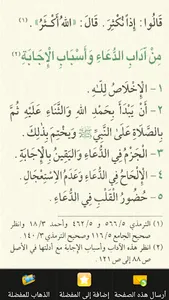 قَالُوا: إِذاً نُكْثِرَ. قَالَ: «اللهُ أَكْثَرُ». (١)
مِنْ آدَابِ الدُّعَاءِ وَأَسْبَابِ الْإِجَابَةِ (٢)
١ - الْإِخْلَاصُ لِلَّهِ.
٢ - أَنْ يَبْدَأَ بِحَمْدِ اللهِ وَالثَّنَاءِ عَلَيْهِ ثُمَّ
بِالصَّلَاةِ عَلَى النَّبِيِّ ﷺ وَيَخْتِمَ بِذَلِكَ.
٣ - الْجَزْمُ فِي الدُّعَاءِ وَالْيَقِينُ بِالْإِجَابَةِ.
٤ - الْإِلْحَاحُ فِي الدُّعَاءِ وَعَدَمُ الِاسْتِعْجَالِ.
٥ - حُضُورُ الْقَلْبِ فِي الدُّعَاءِ.
(١) الترمذي ٥٦٦/٥ و ٤٦٢/٥ وأحمد ١٨/٣ وانظر
صحيح الجامع ١١٦/٥ وصحيح الترمذي ١٤٠/٣.
(٢) انظر هذه الآداب وأسباب الإجابة مع أدلتها في الأصل
من ص ٨٨ إلى ص ١٢١.
أرسال هذه الصفحة
إضافة إلى المفضلة
الذهاب للمفضلة